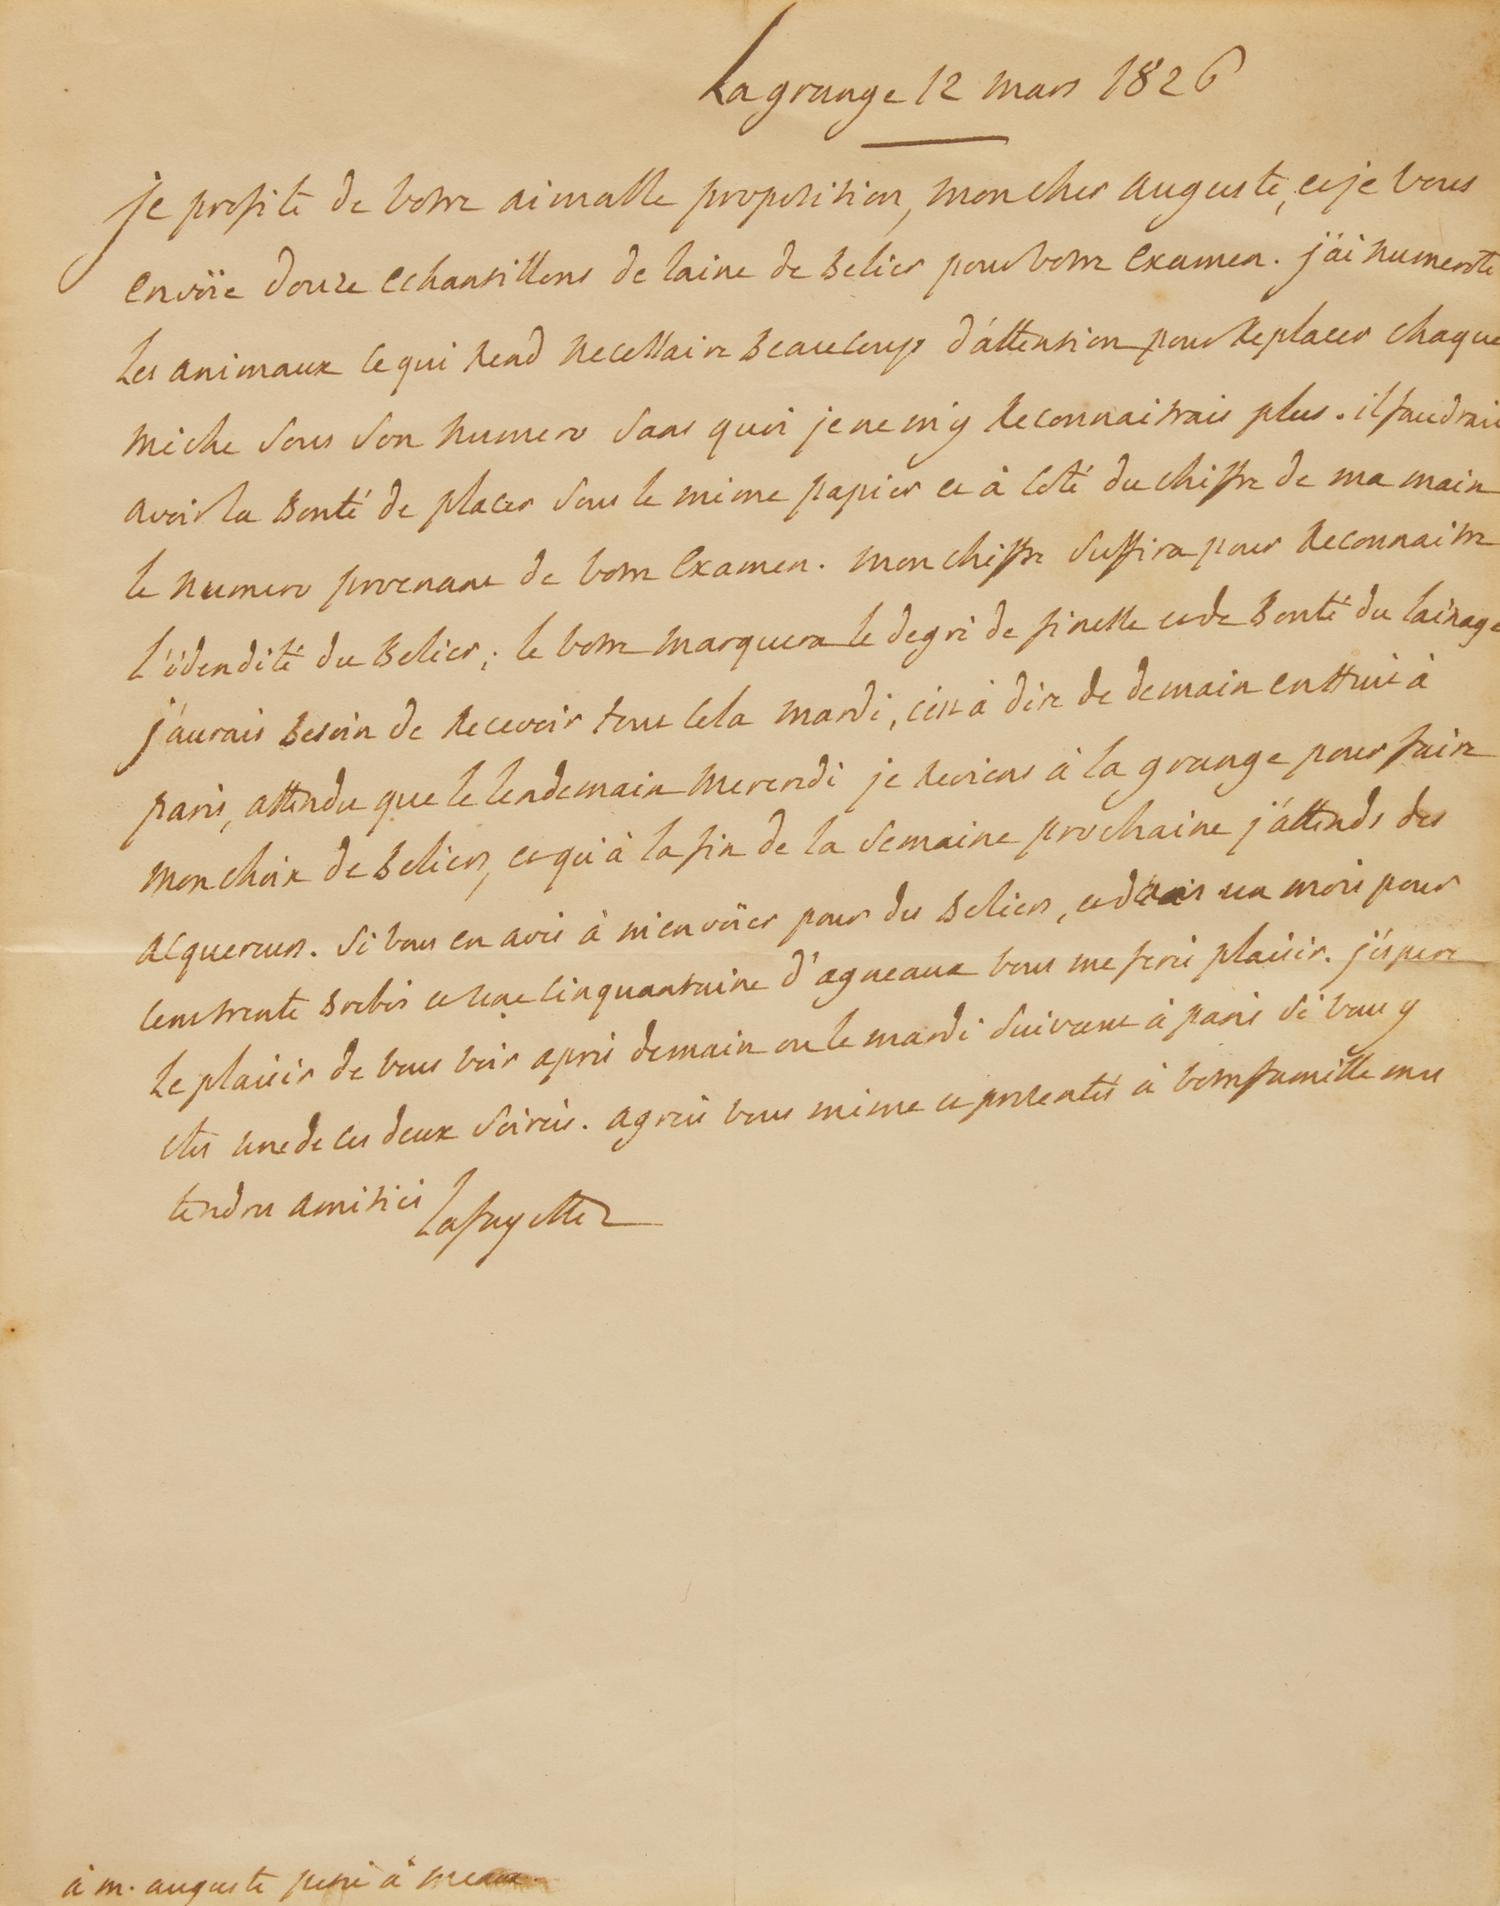 Lagrange 12 mars 1826
je profite de votre aimable proposition, mon cher auguste, et je vous
envoïe douze echantillons de laine de Belier pour votre examen. j'ai numeroté
les animaux ce qui rend necessaire Beaucoup d'attention pour replacer chaque
meche sous son numero sans quoi je ne m'y reconnaitrais plus. il faudrait
avoir la Bonté de placer sous le même papier et à coté du chiffre de ma main
le numero provenant de votre examen. mon chiffre suffira pour reconnaitre
l'idendité du Belier; le votre marquera le degré de finesse et de Bonté du lainage
j'aurais Besoin de recevoir tout cela mardi, c'est à dire de demain en huit à
paris, attendu que le lendemain mercredi je reviens à la grange pour faire
mon choix de Beliers, et qu'à la fin de la semaine prochaine j'attends des
acquereurs. si vous en avés à m'envoïer pour des Beliers, et dans un mois pour
cent trente Brebis et une cinquantaine d'agneaux vous me ferés plaisir. j'espere
le plaisir de vous voir après demain ou le mardi suivant à paris si vous y
etes une de ces deux soirées. agreés vous même et presentés à votre famille mes
tendres amitiés Lafayette
à m. auguste à meaux.